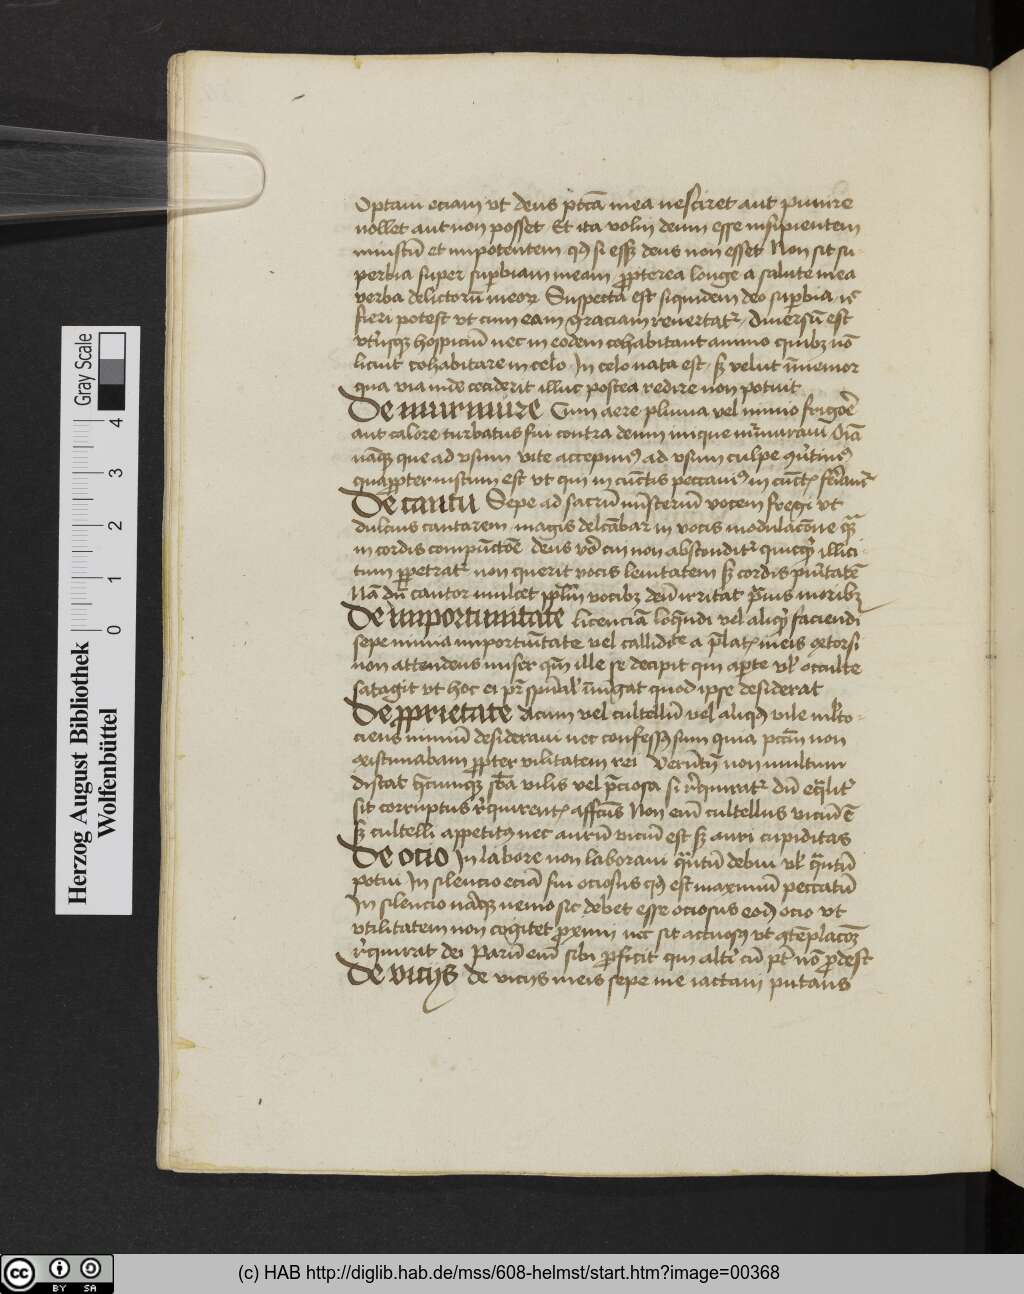 Optaui eciam vt deus pctā mea nesciret aut punire
nollet aut non posset Et ita volui deum esse insipientem
iniustū et impotentem qd si esset deus non esset Non sit su
perbia super suꝑbiam meam ꝓpterea longe a salute mea
verba delictorū meoꝝ Suspecta est siquidem deo suꝑbia
fieri potest vt cum eam graciam reuertatr diuersū est
vtriusqꝫ hospiciū nec in eodem cohabitant animo quibꝫ nō
licuit cohabitare in celo In celo nata est sꝫ velut īmemor
qua via inde ceciderit illuc postea redire non potuit
De murmure Cum aere pluuia vel nimio frigoē
aut calore turbatus fui contra deum inique murmuraui Oīa
nāqꝫ que ad vsum vite accepimꝰ ad vsum culpe
quaꝓpter iustum est vt qui in cunctis peccauimꝰ in cunctꝭ
De cantu Sepe ad sacrū misteriū vocem fregi vt
dulcius cantarem magis delcābar in vocis modulacōne
in cordis compunctōe deus cui non absconditr quicqd illici
tum ꝑpetratr non querit vocis leuitatem sꝫ cordis puritatē
Nā dū cantor mulcet pplm vocibꝫ deū irritat prauis moribꝫ
De importunitate licenciā loquendi vel aliqd faciendi
sepe nimia importunitate vel a p̄latꝭ meis extorsi
non attendens miser qm ille se decipit qui aꝑte vl occulte
satagit vt hoc ei pr spūalis iniūgat quod ipse desiderat
De ꝓprietate Acum vel cultellū vel aliqd vile
ciens nimiū desideraui nec confessꝰ sum quia pctm non
existimabam ꝓpter vilitatem rei Verūtn non multum
distat qcumqꝫ sba vilis vel p̄ciosa si requiratr dū eqlitr
sit corruptus requirentꝭ affcus Non em̄ cultellus viciū ē
sꝫ cultelli appetitꝰ nec aurū viciū est sꝫ auri cupiditas
De ocio In labore non laboraui quātū debui vl quātū
potui In silencio eciā fui ociosus qd est maximū peccatū
In silencio nāqꝫ nemo sic debet esse ociosus eod ocio vt
vtilitatem non cogitet ꝓximi nec sit actuosꝰ vt
requirat dei Parū em̄ sibi ꝓficit qui altri cū pt nō ꝓdest
De vicijs de vicijs meis sepe me iactaui putans
Herzog August Bibliothek
Wolfenbüttel
Gray Scale
0 1 2 3 4
(c) HAB http://diglib.hab.de/mss/608-helmst/start.htm?image=00368
cc BY SA